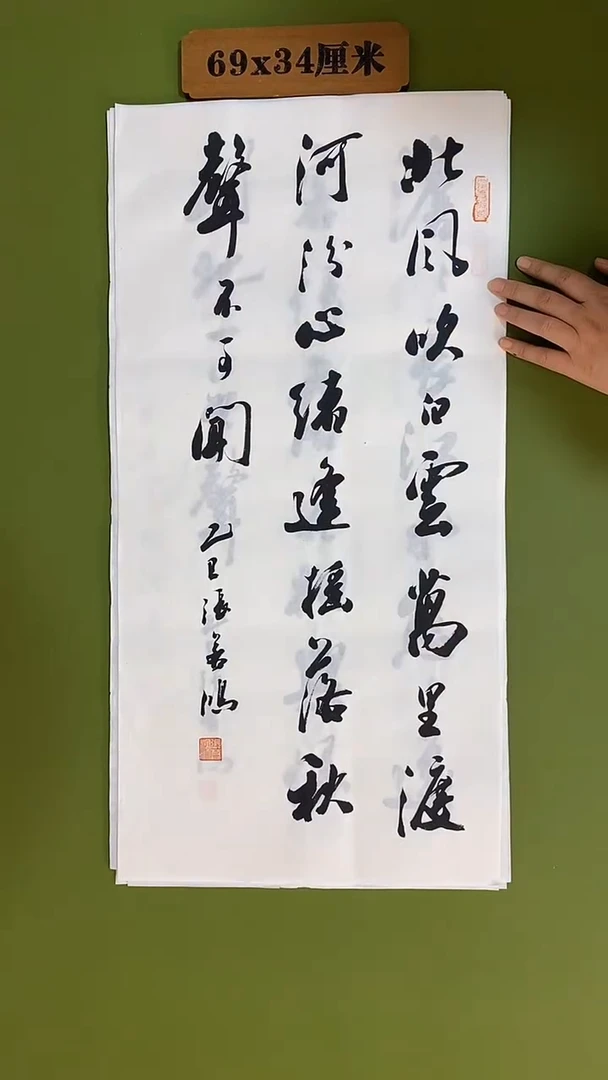 69x34厘米
北风吹白雲萬里渡
河汾心緒逢摇落秋
聲不可聞
乙巳張鴻